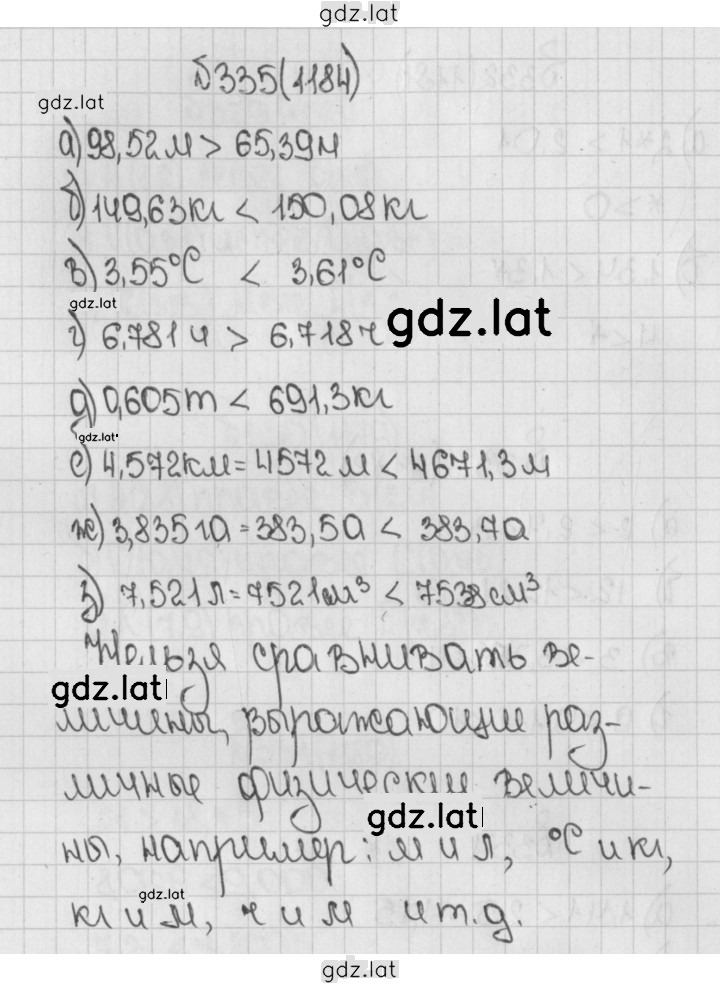 gdz.lat
№335(1184)
gdz.lat
а) 98,52 м > 65,39 м
б) 149,63 кг < 150,08 кг
в) 3,55°С < 3,61°С
gdz.lat
г) 6,781 ч > 6,718 ч
gdz.lat
д) 0,605 т < 691,3 кг
gdz.lat
е) 4,572 км = 4572 м < 4671,3 м
ж) 3,835 га = 383,5 а < 383,7 а
з) 7,521 л = 7521 см³ < 7538 см³
Нельзя сравнивать ве-
gdz.lat
личины, выражающие раз-
личные физические величи-
gdz.lat
ны, например: м и л, °С и кг,
gdz.lat
кг и м, ч и м и т.д.
gdz.lat